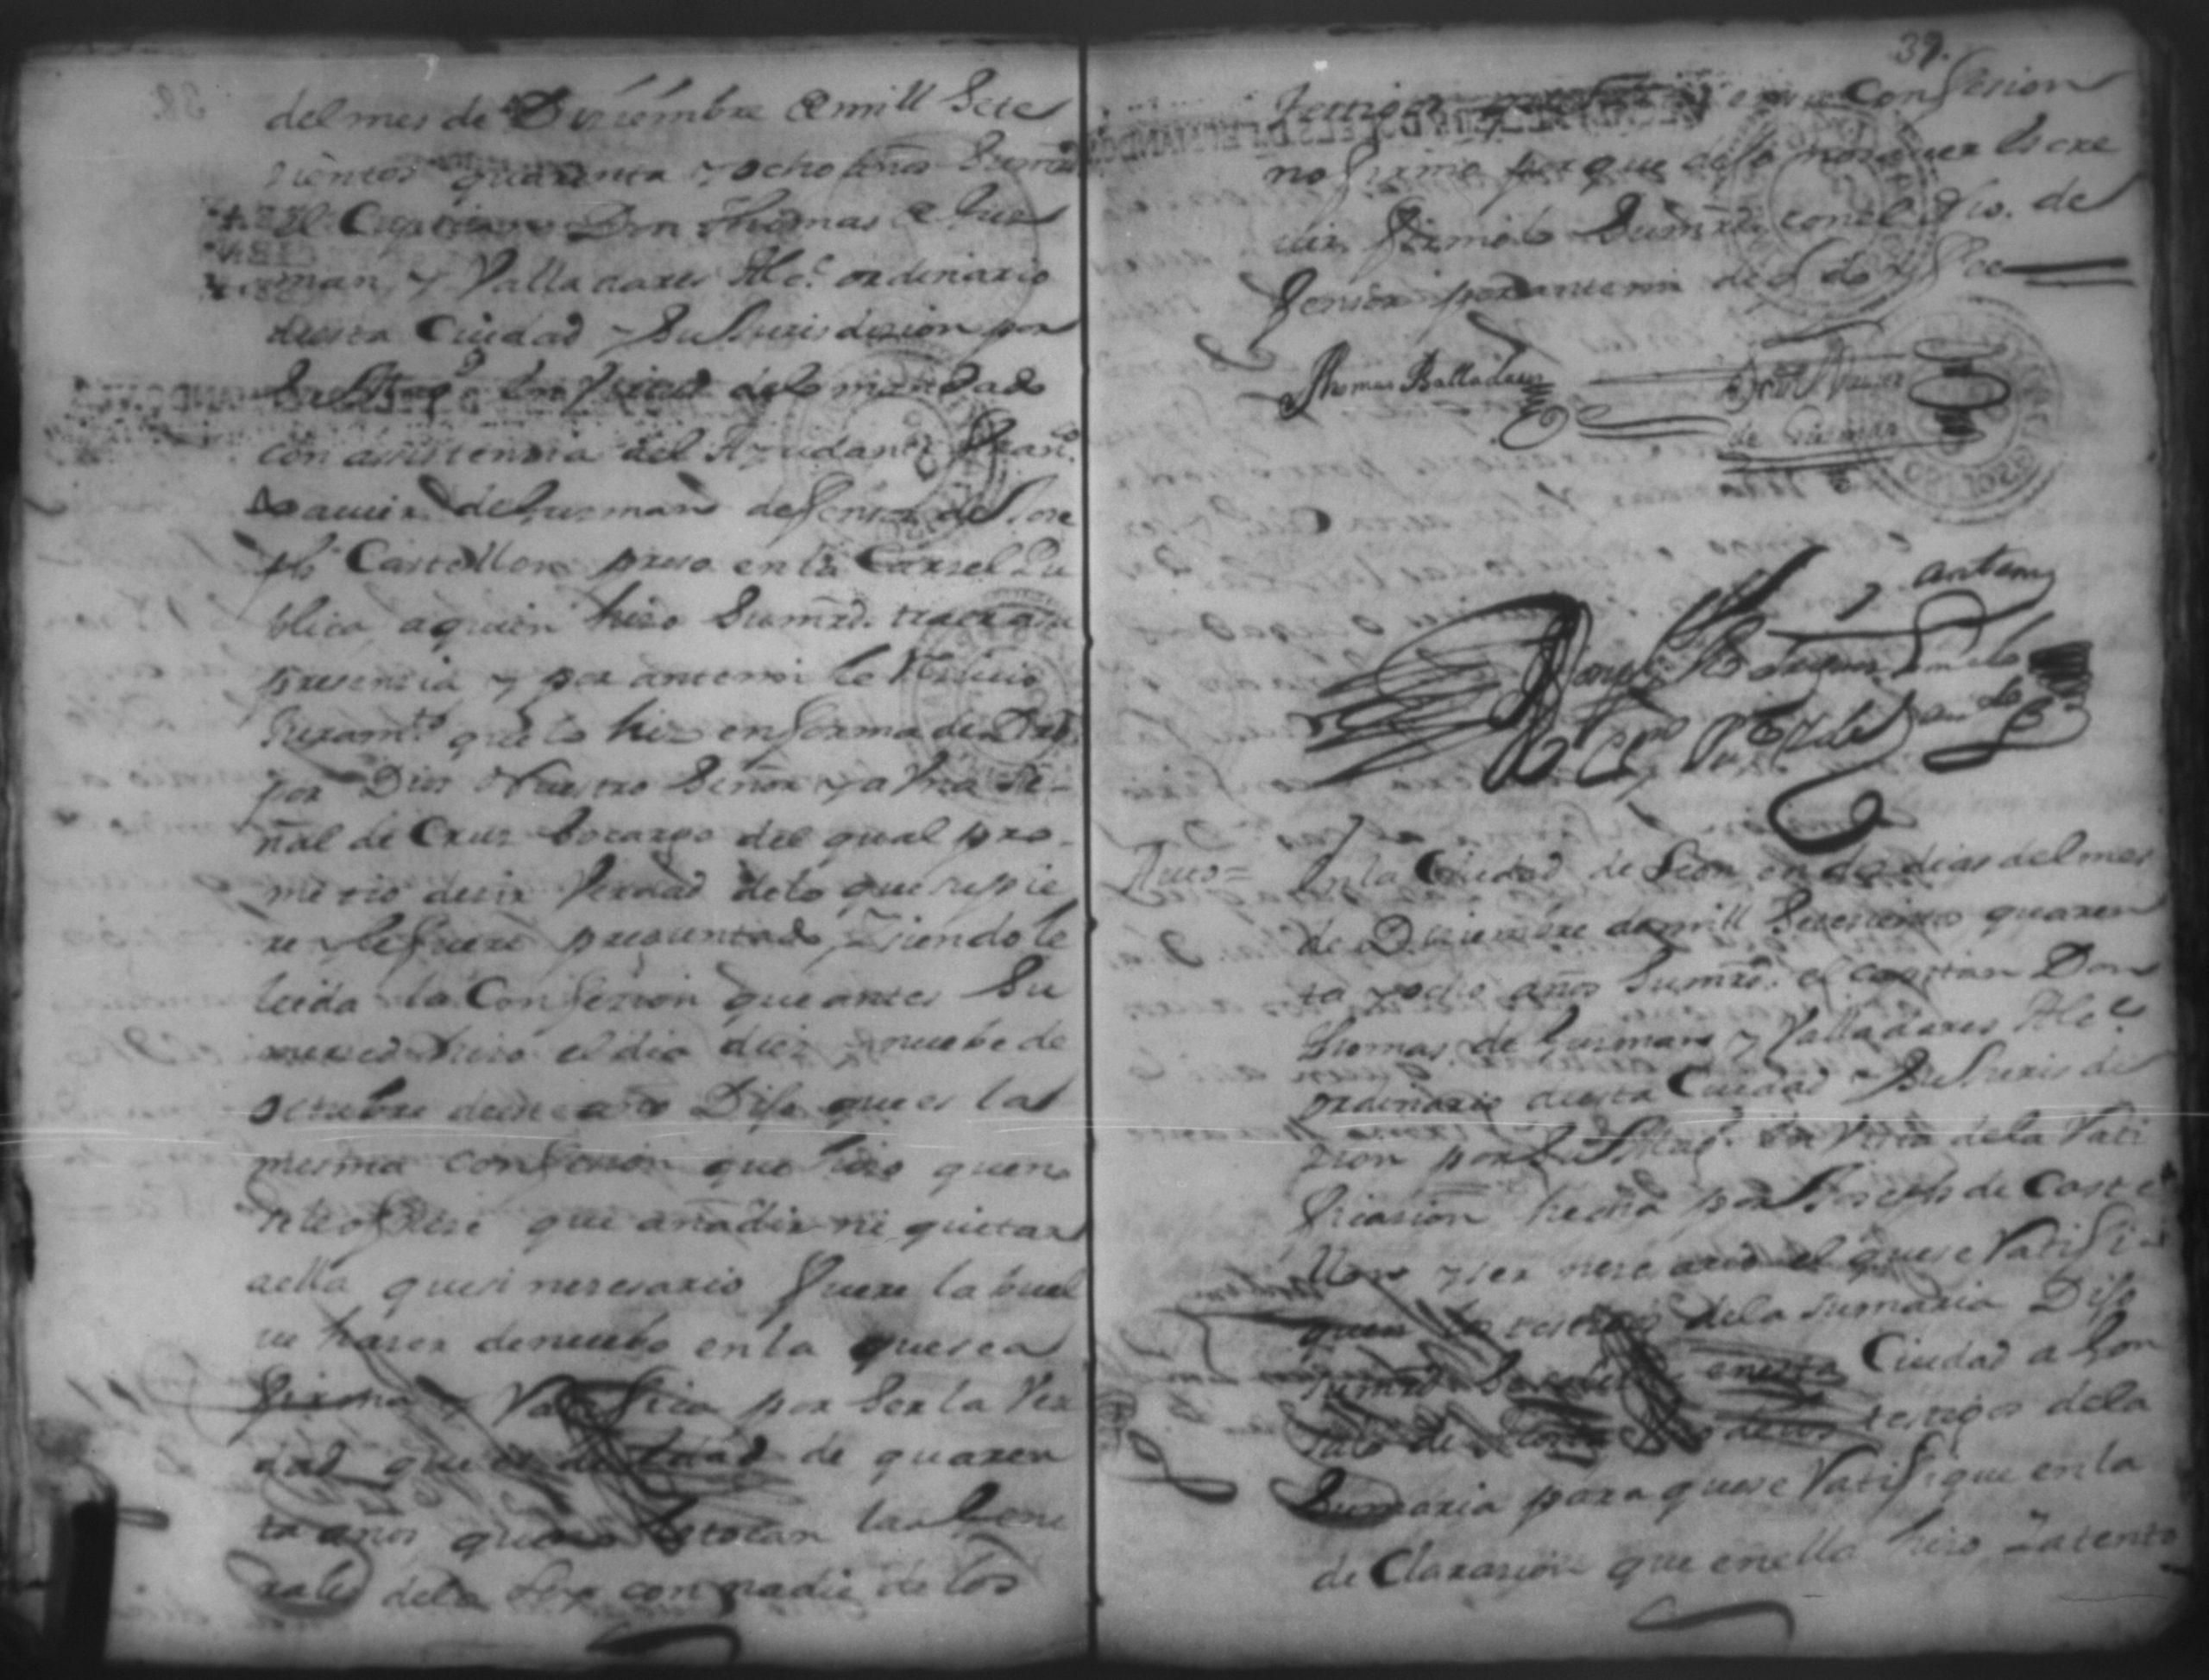 del mes de Disiembre de mill Sete
sientos quarenta y ocho años Sumrd.
el Capitan Don Thomas de Gus
man y Valladares Alc.e ordinario
desta Ciudad y Su Jurisdision por
Su Mag.d En Virtud de lo mandado
con asistensia del Ayudante Fran.co
Xavier de Gusman defensor de Jose
ph Castellon preso en la Carsel Pu
blica aquien hiso Sumrd. traer a su
presensia y por antemi le Resivio
Juram.to que lo hizo en forma de Dro
por Dios Nuestro Señor y a Una Se-
ñal de Cruz socargo del qual pro-
metio desir Verdad de lo que supie
re y le fuere preguntado y siendole
leida la Confesion que antes Su
merced hiso el dia dies y nuebe de
octubre deste año Dijo que es la
mesma confesion que hiso que no
se le ofrese que añadir ni quitar
a ella que si nesesario fuere la buel
ve haser de nuebo en la que se a
firma y Ratifica por Ser la Ver
dad que es de hedad de quaren
ta años que no le tocan las Gene
rales de la Ley con nadie de los
39.
testigos confesion
no firmo porque dijo no saver Escre
vir firmolo Sumrd. con el dho. de
fensor por antemi de q̃ doy fee
Thomas Balladares
de Gusman
antemi
Auto =
En la Ciudad de Leon en dos dias del mes
de Disiembre de mill Setesientos quaren
ta y ocho años Sumrd. el capitan Don
Thomas de Gusman y Valladares Alc.e
ordinario desta Ciudad y Su Juris di
sion por Su Mag.d En Vista de la Rati
ficasion hecha por Joseph de Caste
llon y ser nesesario el que se Ratifi-
quen los testigos de la sumaria Dijo
Sumrd. en esta Ciudad a Gon
salo de testigos de la
Sumaria para que se Ratifique en la
de Clarasion que en ella hiso Y atento